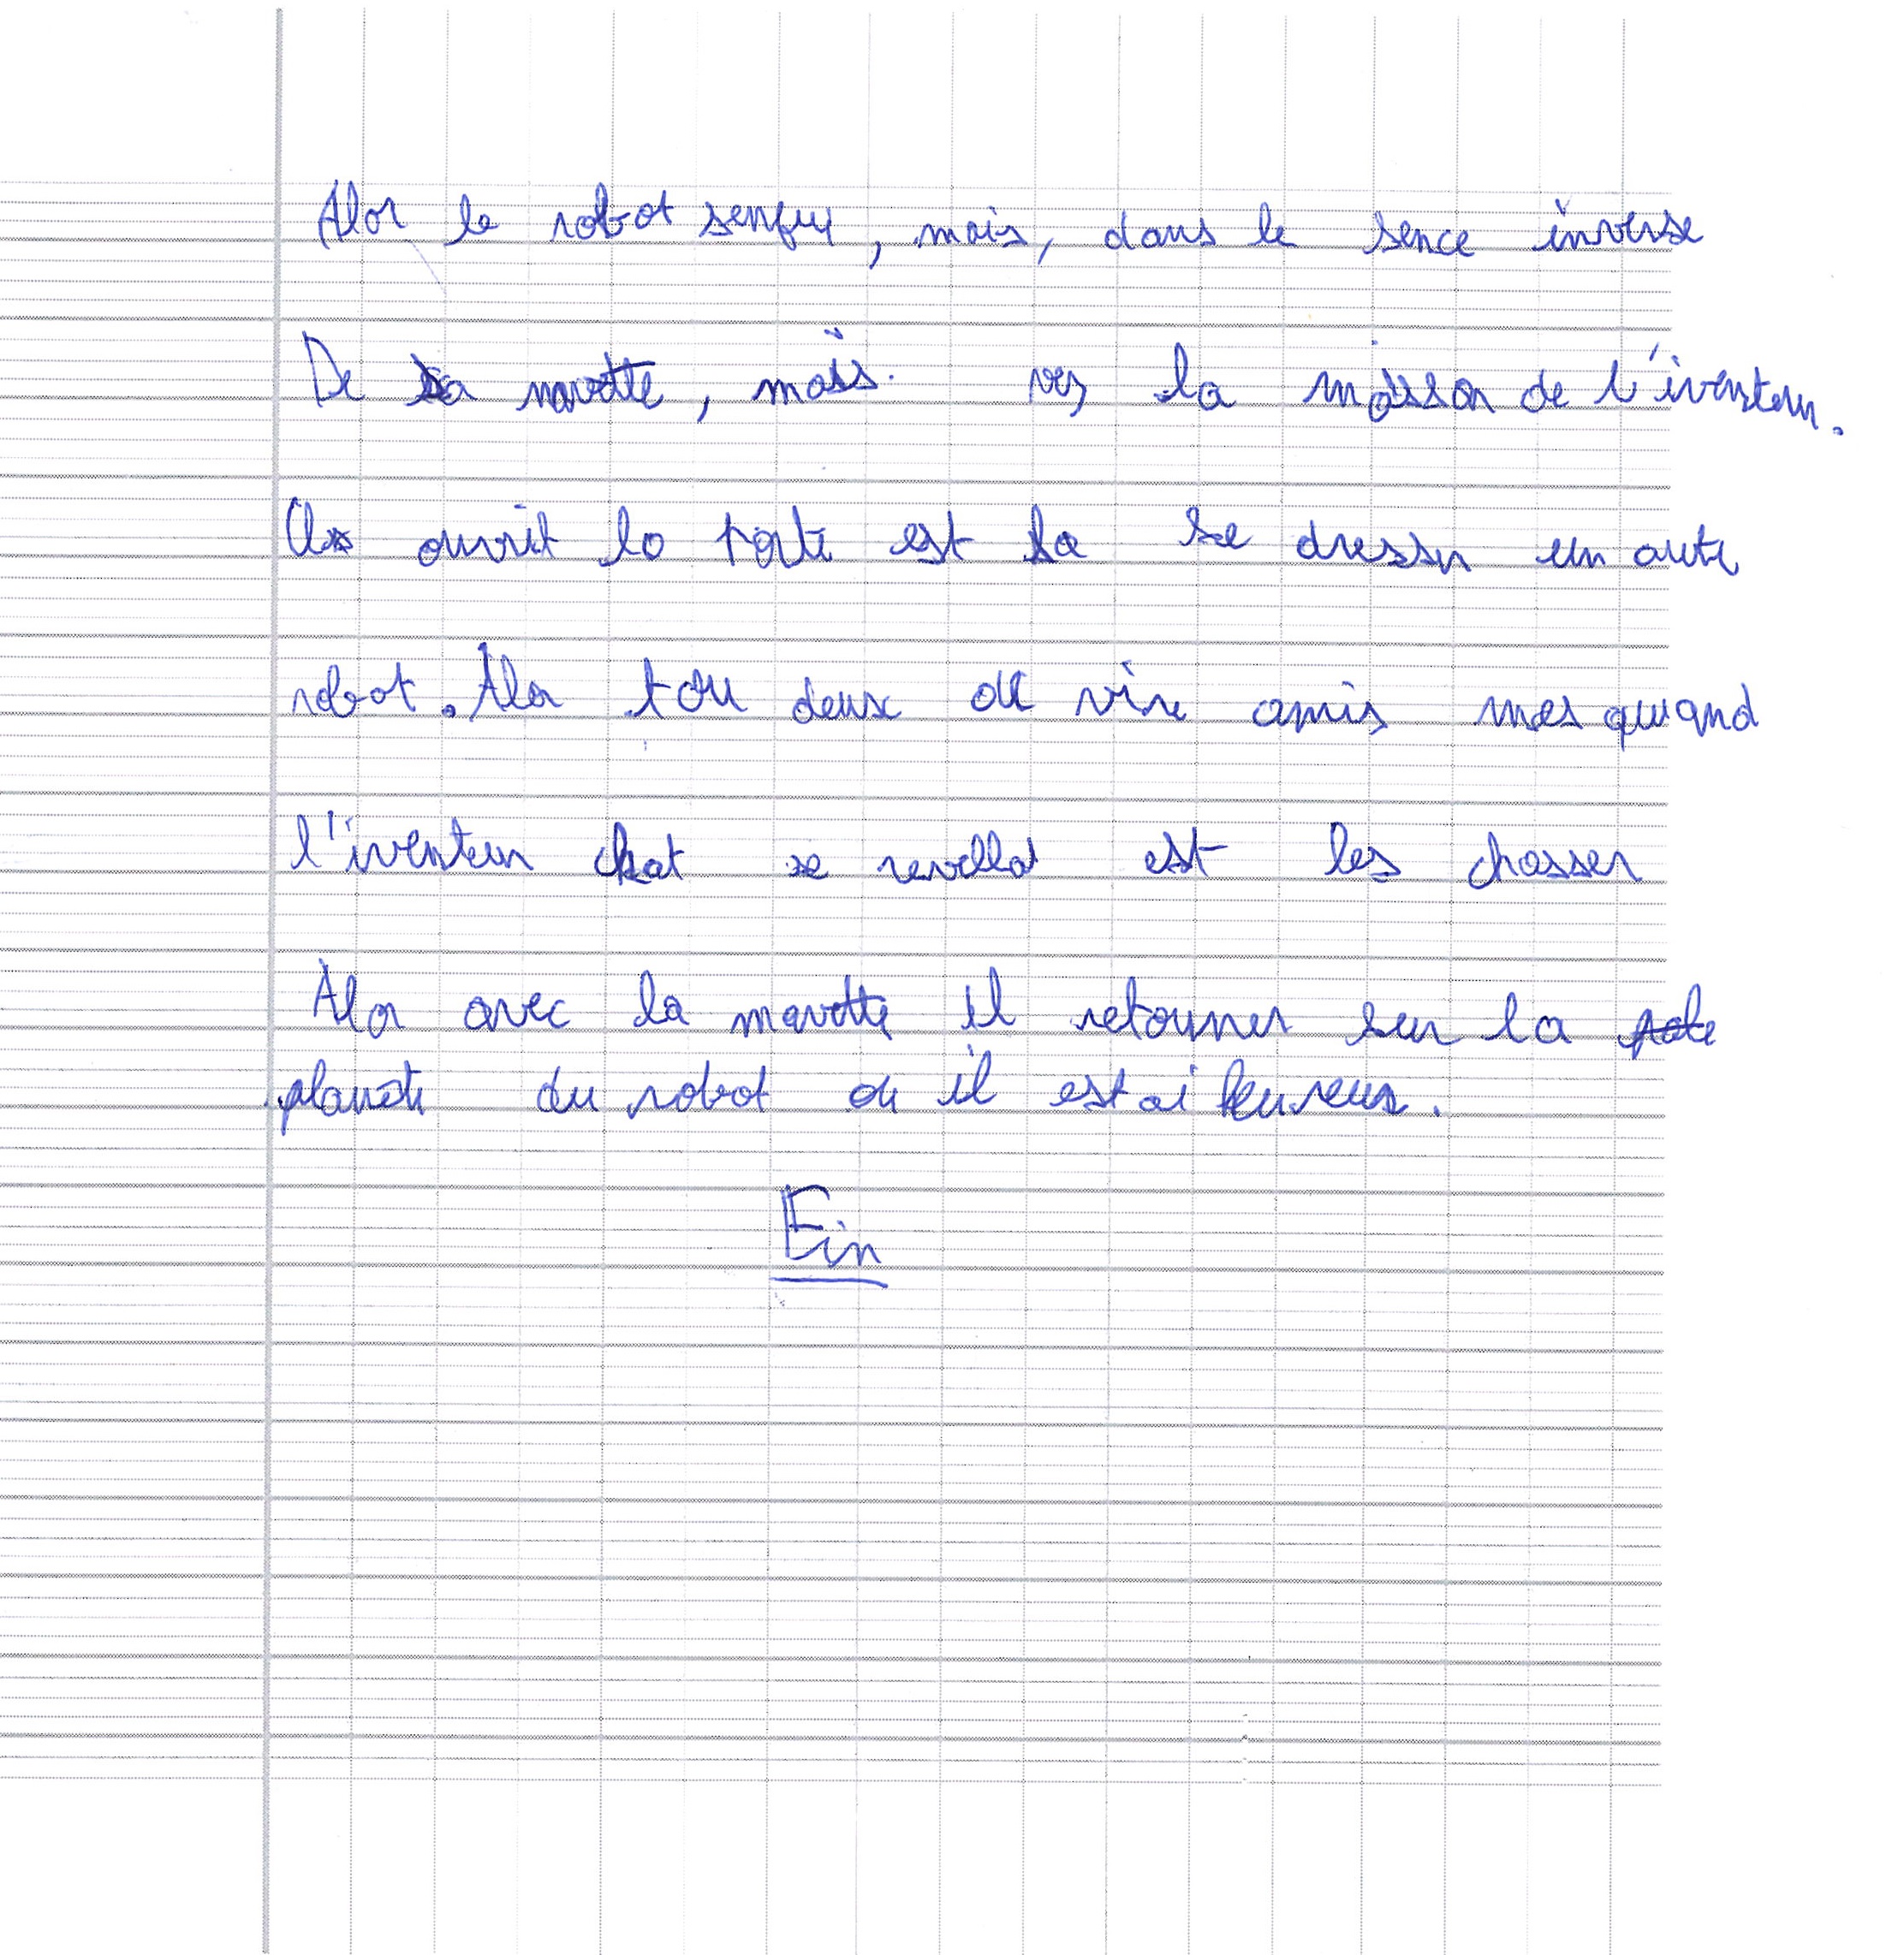 Alor le robot senfuy, mais, dans le sence inverse
De sa navette, mais. ves la maisson de l'iventeur.
ouvrit la porte est la se dresser un autre
robot. Alor tou deux vire amis mes quand
l'iventeur chat se revellat est les chasser
Alor avec la navette il retourner sur la
planète du robot ou il est ai heureux.
Fin